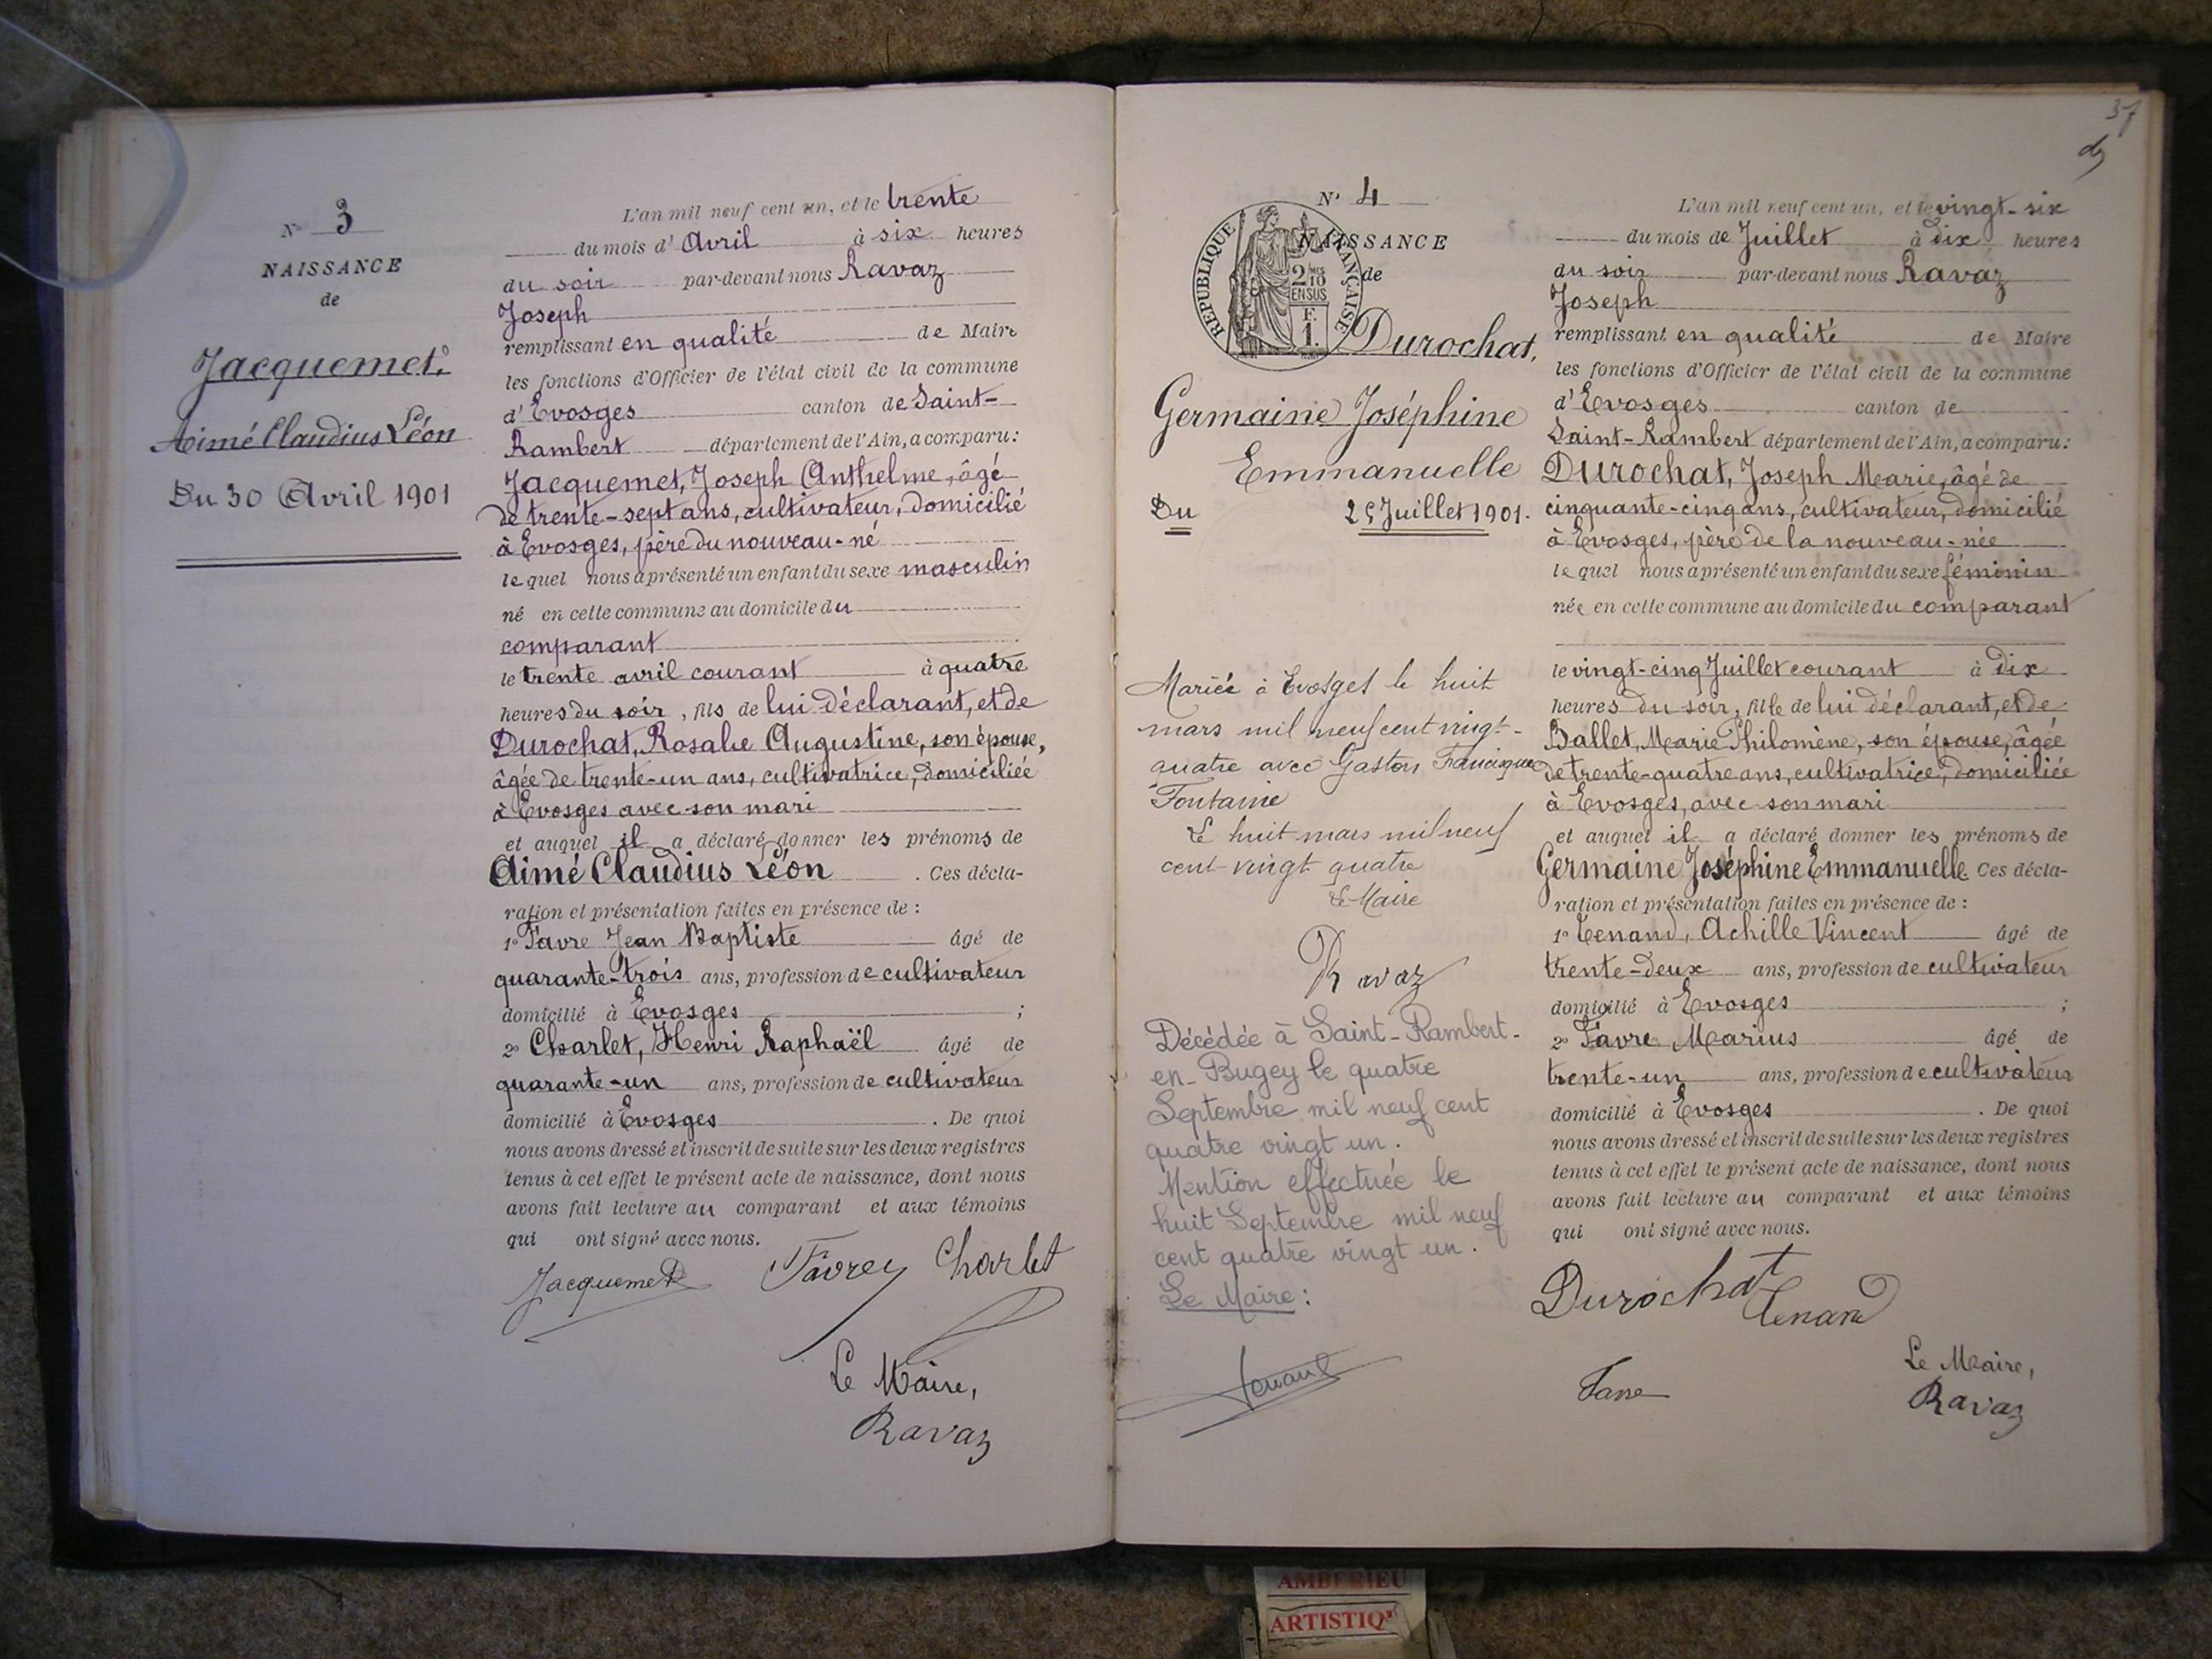 N° 3
NAISSANCE
de
Jacquemet,
Aimé Claudius Léon
Du 30 Avril 1901
L'an mil neuf cent un, et le trente
du mois d' Avril à six heures
du soir par-devant nous Ravaz
Joseph
remplissant en qualité de Maire
les fonctions d'Officier de l'état civil de la commune
d' Evosges canton de Saint-
Rambert département de l'Ain, a comparu:
Jacquemet, Joseph Anthelme, âgé
de trente-sept ans, cultivateur, domicilié
à Evosges, père du nouveau-né
lequel nous a présenté un enfant du sexe masculin
né en cette commune au domicile du
comparant
le trente avril courant à quatre
heures du soir, fils de lui déclarant, et de
Durochat, Rosalie Augustine, son épouse,
âgée de trente-un ans, cultivatrice, domiciliée
à Evosges avec son mari
et auquel il a déclaré donner les prénoms de
Aimé Claudius Léon. Ces décla-
ration et présentation faites en présence de :
1° Favre Jean Baptiste âgé de
quarante-trois ans, profession de cultivateur
domicilié à Evosges ;
2° Charlet, Henri Raphaël âgé de
quarante-un ans, profession de cultivateur
domicilié à Evosges. De quoi
nous avons dressé et inscrit de suite sur les deux registres
tenus à cet effet le présent acte de naissance, dont nous
avons fait lecture au comparant et aux témoins
qui ont signé avec nous.
Jacquemet Favre Charlet
Le Maire,
Ravaz
37
N° 4
NAISSANCE
de
REPUBLIQUE FRANÇAISE
2 MES
10
EN SUS
F.
1.
Durochat,
Germaine Joséphine
Emmanuelle
Du 25 Juillet 1901.
Mariée à Evosges le huit
mars mil neuf cent vingt-
quatre avec Gaston Francisque
Fontaine
Le huit mars mil neuf
cent vingt quatre
Le Maire
Ravaz
Décédée à Saint-Rambert-
en-Bugey le quatre
Septembre mil neuf cent
quatre vingt un.
Mention effectuée le
huit Septembre mil neuf
cent quatre vingt un.
Le Maire :
L'an mil neuf cent un, et le vingt-six
du mois de Juillet à dix heures
du soir par-devant nous Ravaz
Joseph
remplissant en qualité de Maire
les fonctions d'Officier de l'état civil de la commune
d' Evosges canton de
Saint-Rambert département de l'Ain, a comparu:
Durochat, Joseph Marie, âgé de
cinquante-cinq ans, cultivateur, domicilié
à Evosges, père de la nouveau-née
lequel nous a présenté un enfant du sexe féminin
née en cette commune au domicile du comparant
le vingt-cinq Juillet courant à dix
heures du soir, fille de lui déclarant, et de
Ballet, Marie Philomène, son épouse, âgée
de trente-quatre ans, cultivatrice, domiciliée
à Evosges, avec son mari
et auquel il a déclaré donner les prénoms de
Germaine Joséphine Emmanuelle. Ces décla-
ration et présentation faites en présence de :
1° Tenand, Achille Vincent âgé de
trente-deux ans, profession de cultivateur
domicilié à Evosges ;
2° Favre Marius âgé de
trente-un ans, profession de cultivateur
domicilié à Evosges. De quoi
nous avons dressé et inscrit de suite sur les deux registres
tenus à cet effet le présent acte de naissance, dont nous
avons fait lecture au comparant et aux témoins
qui ont signé avec nous.
Durochat Tenand
Favre
Le Maire,
Ravaz
AMBERIEU
ARTISTIQ